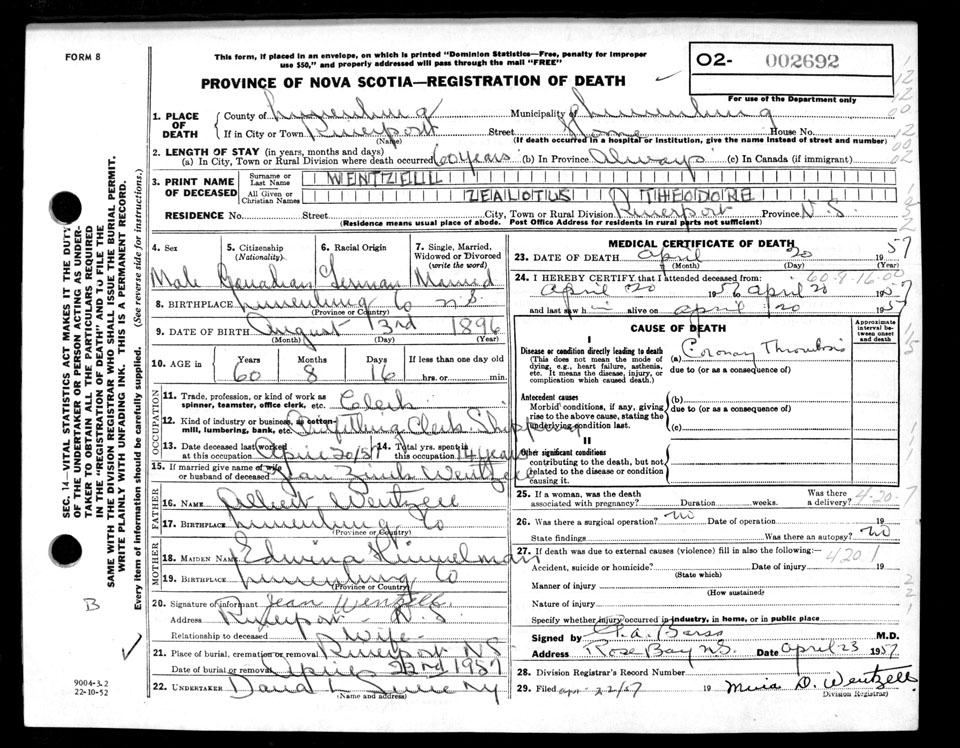 FORM 8
This form, if placed in an envelope, on which is printed "Dominion Statistics—Free, penalty for improper
use $50," and properly addressed will pass through the mail "FREE"
O2- 002692
For use of the Department only
PROVINCE OF NOVA SCOTIA—REGISTRATION OF DEATH
1. PLACE OF DEATH
County of Lunenburg Municipality of Lunenburg
If in City or Town Riverport Street Home House No.
(Name) (If death occurred in a hospital or institution, give the name instead of street and number)
2. LENGTH OF STAY (in years, months and days)
(a) In City, Town or Rural Division where death occurred 60 years (b) In Province Always (c) In Canada (if immigrant)
3. PRINT NAME OF DECEASED
Surname or Last Name WENTZELL
All Given or Christian Names ZEALOTUS THEODORE
RESIDENCE No. Street City, Town or Rural Division Riverport Province N.S.
(Residence means usual place of abode. Post Office Address for residents in rural parts not sufficient)
4. Sex 5. Citizenship (Nationality) 6. Racial Origin 7. Single, Married, Widowed or Divorced (write the word)
Male Canadian German Married
8. BIRTHPLACE Lunenburg Co N.S.
(Province or Country)
9. DATE OF BIRTH August 3rd 1896
(Month) (Day) (Year)
10. AGE in Years Months Days If less than one day old
60 8 16 hrs. or min.
OCCUPATION
11. Trade, profession, or kind of work as spinner, teamster, office clerk, etc. Clerk
12. Kind of industry or business, as cotton-mill, lumbering, bank, etc. Outfitting Clerk Shipping
13. Date deceased last worked at this occupation April 20/57 14. Total yrs. spent in this occupation 14 years
15. If married give name of wife or husband of deceased Jean Zink Wentzell
FATHER
16. NAME Albert Wentzell
17. BIRTHPLACE Lunenburg Co
(Province or Country)
MOTHER
18. MAIDEN NAME Edwina Himmelman
19. BIRTHPLACE Lunenburg Co
(Province or Country)
20. Signature of informant Jean Wentzell
Address Riverport N.S
Relationship to deceased Wife
21. Place of burial, cremation or removal Riverport N.S.
Date of burial or removal April 22nd 1957
22. UNDERTAKER David
(Name and address)
MEDICAL CERTIFICATE OF DEATH
23. DATE OF DEATH April 20 1957
(Month) (Day) (Year)
60-8-16-00
24. I HEREBY CERTIFY that I attended deceased from:
April 20 1957 to April 20 1957
and last saw h i alive on April 20 1957
CAUSE OF DEATH
Approximate interval between onset and death
I
Disease or condition directly leading to death
(This does not mean the mode of dying, e.g., heart failure, asthenia, etc. It means the disease, injury, or complication which caused death.)
(a) Coronary Thrombosis
due to (or as a consequence of)
Antecedent causes
Morbid conditions, if any, giving rise to the above cause, stating the underlying condition last.
(b)
due to (or as a consequence of)
(c)
II
Other significant conditions
contributing to the death, but not related to the disease or condition causing it.
25. If a woman, was the death associated with pregnancy? Duration weeks. Was there a delivery?
4-20-7
26. Was there a surgical operation? no Date of operation 19
State findings Was there an autopsy? no
27. If death was due to external causes (violence) fill in also the following:—
4201
Accident, suicide or homicide? Date of injury 19
(State which)
Manner of injury
(How sustained)
Nature of injury
Specify whether injury occurred in industry, in home, or in public place
Signed by M.D.
Address Rose Bay N.S. Date April 23 1957
28. Division Registrar's Record Number
29. Filed apr 22/57 19 D. Wentzell
Division Registrar)
SEC. 14—VITAL STATISTICS ACT MAKES IT THE DUTY
OF THE UNDERTAKER OR PERSON ACTING AS UNDER-
TAKER TO OBTAIN ALL THE PARTICULARS REQUIRED
IN THE "REGISTRATION OF DEATH" AND TO FILE THE
SAME WITH THE DIVISION REGISTRAR WHO SHALL ISSUE THE BURIAL PERMIT.
WRITE PLAINLY WITH UNFADING INK. THIS IS A PERMANENT RECORD.
Every item of information should be carefully supplied. (See reverse side for instructions.)
B
9004-3.2
22-10-52